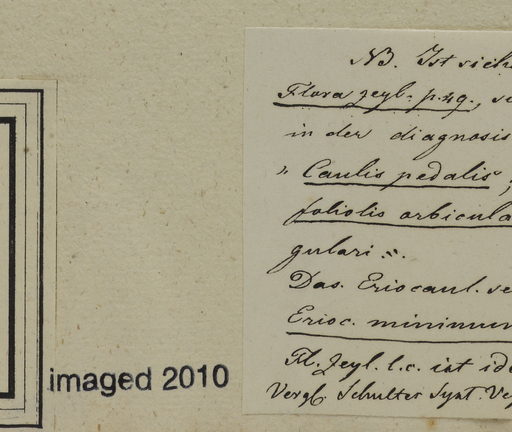 NB. Ist sich
Flora zeyl. p. 49.,
in der diagnosis
" Caulis pedalis",
foliolis orbicula
gulari ".
Das Eriocaul. se
Erioc. minimum
Fl. Zeyl. l.c. ist ide
Vergl. Schultes Syst. Veg
imaged 2010